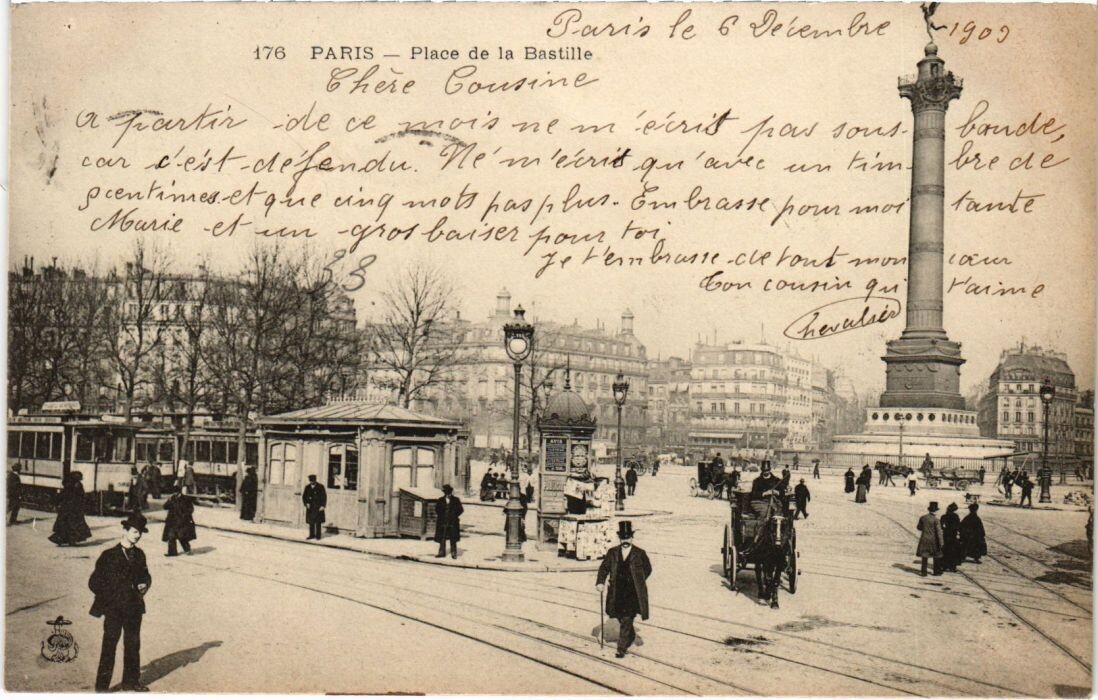 Paris le 6 Décembre 1903
176 PARIS — Place de la Bastille
Chère Cousine
A partir de ce mois ne m'écrit pas sous bande,
car c'est défendu. Ne m'écrit qu'avec un timbre de
5 centimes et que cinq mots pas plus. Embrasse pour moi tante
Marie et un gros baiser pour toi
Je t'embrasse de tout mon cœur
Ton cousin qui t'aime
Chevalier
33